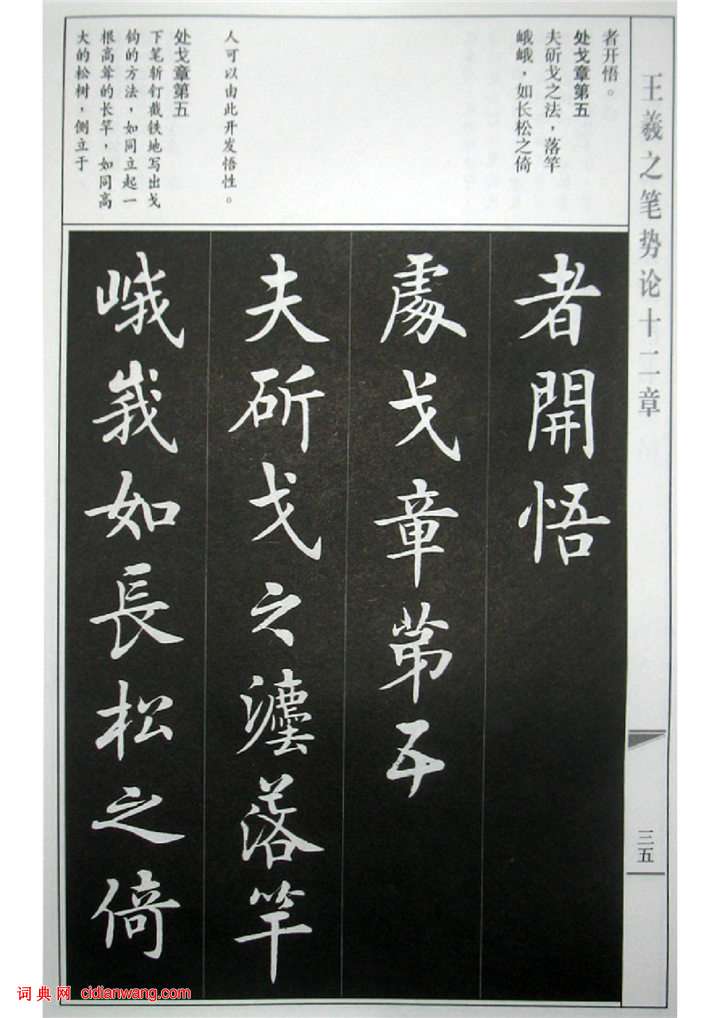 王羲之笔势论十二章
三五
者开悟。
处戈章第五
夫斫戈之法，落竿
峨峨，如长松之倚
人可以由此开发悟性。
处戈章第五
下笔斩钉截铁地写出戈
钩的方法，如同立起一
根高耸的长竿，如同高
大的松树，侧立于
者開悟
處戈章第五
夫斫戈之灋落竿
峨峩如長松之倚
词典网 cidianwang.com